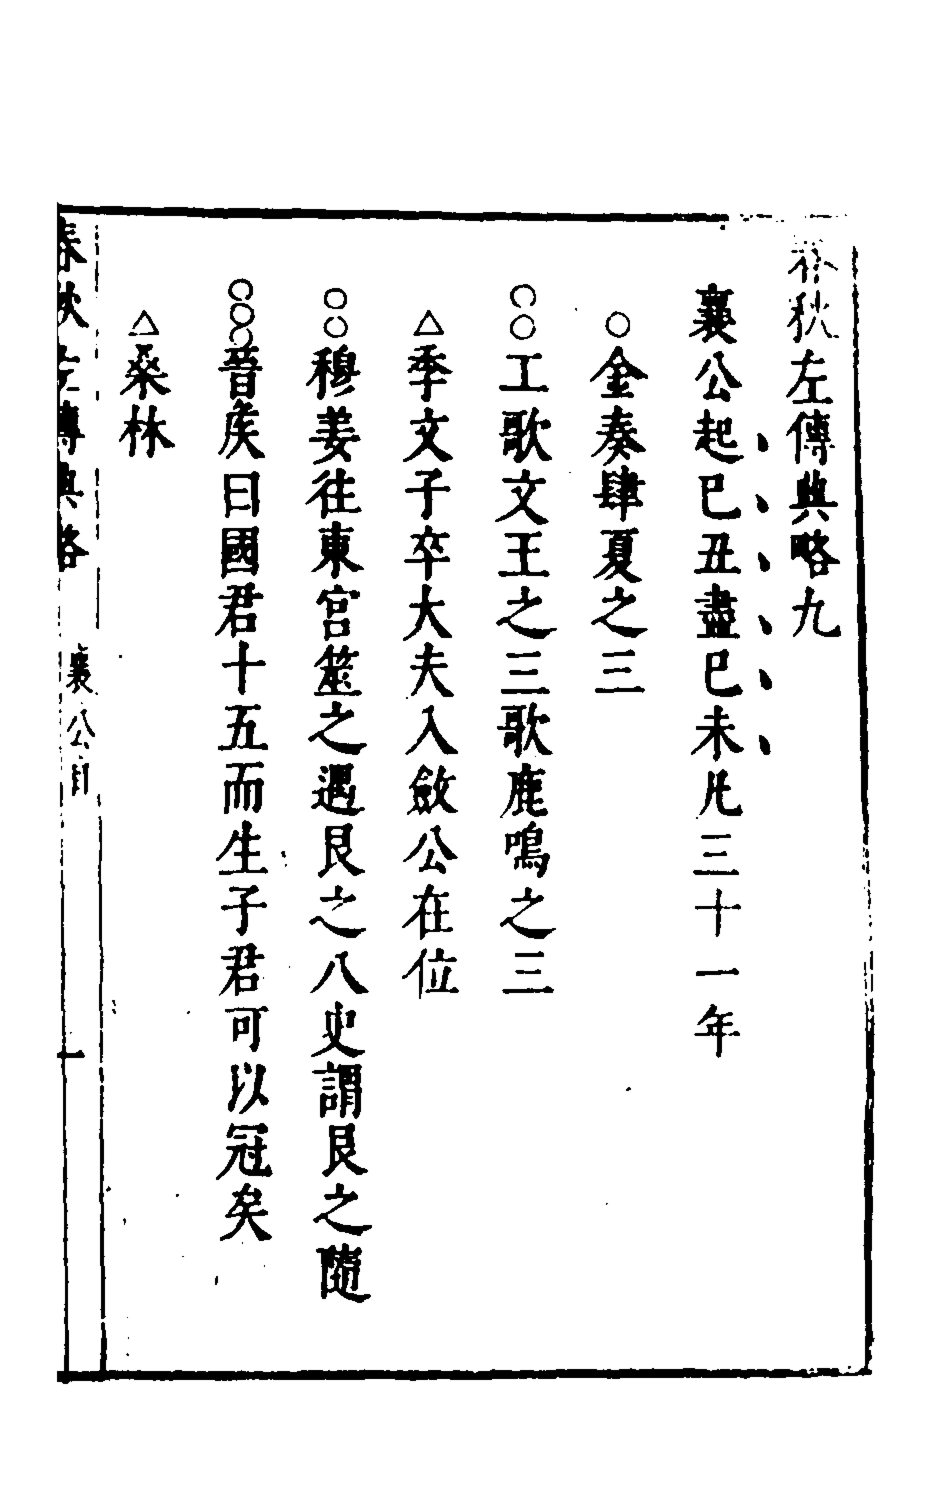 春秋左傳典略九
襄公起已丑盡已未凡三十一年
○金奏肆夏之三
○○工歌文王之三歌鹿鳴之三
△季文子卒大夫入斂公在位
○○穆姜往東宮筮之遇艮之八史謂艮之隨
○○○晉矦曰國君十五而生子君可以冠矣
△桑林
春秋左傳典略 襄公目 一